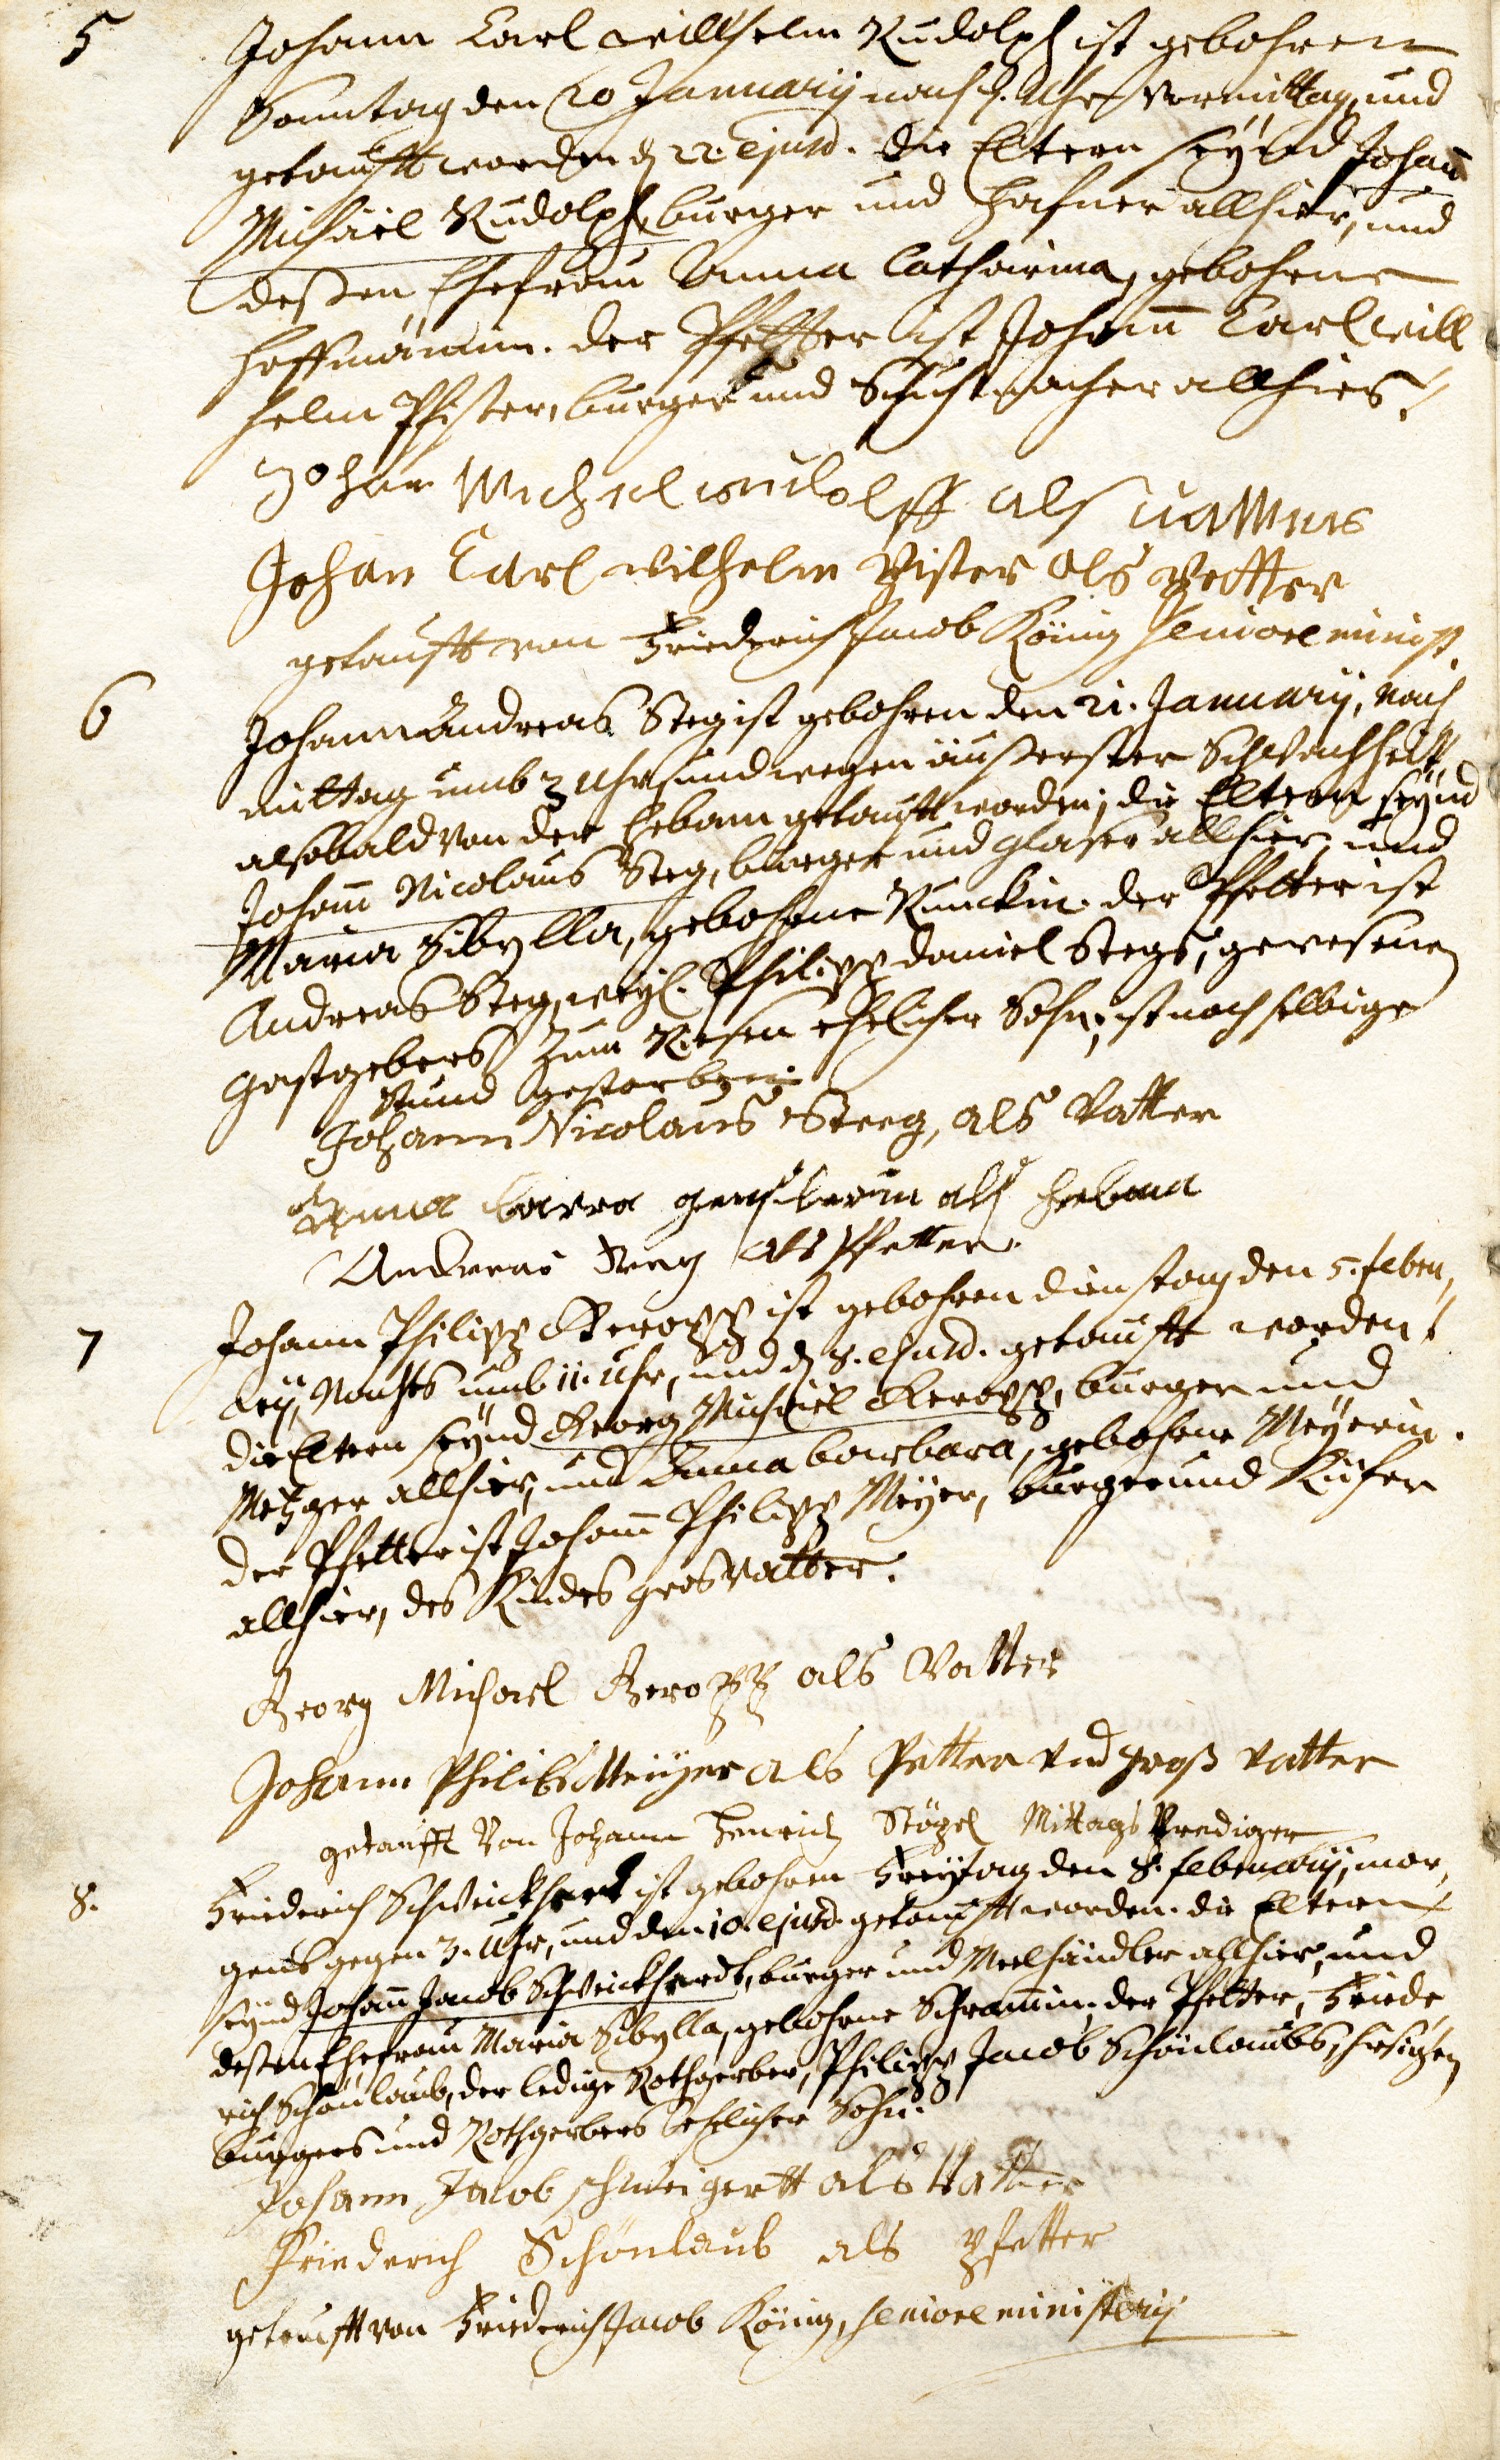 5 Johann Carl Willhelm Rudolph ist gebohren
Sonntag den 20 Januarij nach 9. Uhr Vormittag, und
getaufft worden d. 22. ejusd. die Eltern seynd Johañ
Michäel Rudolph, burger und Hafner allhier, und
deßen Ehefrau Anna Catharina, gebohrne
Hoffmännin. der Pfetter ist Johañ Carl Will
helm Pfister, burger und Schuhmacher allhier.
Johan Michel Rudolff als vatter
Johan Carl Wilhelm Pister als Pettter
getaufft von Friedrich Jacob König seniore minist.
6 Johann Andreas Steg ist gebohren den 21. Januarij, Nach
mittag umb 3 Uhr, und wegen äußerster Schwachheit
alsobald von der Hebam getaufft worden; die Eltern seynd
Johañ Nicolaus Steg, burger und glaser allhier, und
Maria Sibylla, gebohrne Runckin. der Pfetter ist
Andreas Steg, weyl. Philipp Daniel Stegs, gewesenen
Gastgebers Zum Riesen ehelicher Sohn; ist noch selbige
Stund gestorben.
Johann Nicolaus Steeg, als Vatter
Anna barra als Hebama
Andreas Steeg als Pfetter.
7 Johann Philipp Geropp ist gebohren dienstag den 5. febru,
arij, Nachts umb 11. Uhr, und d. 8. ejusd. getaufft worden.
die Eltern seynd Georg Michäel Geropp, burger und
Metzger allhier, und Anna barbara, gebohrne Meyerin.
der Pfetter ist Johañ Philipp Meyer, burger und Küfer
allhier, des Kindes grosvatter.
Georg Michael Geropp als Vatter
Johann Philibs Meiyer als Petter und groß vatter
getaufft Von Johann Henrich Stözel Mittags Prediger
8. Friederich Schweickhardt ist gebohren Freytag den 8. februarij, mor,
gens gegen 3. Uhr, und den 10. ejusd. getaufft worden. die Eltern
seynd Johañ Jacob Schweickhardt, burger und Meelhändler allhier, und
deßen Ehefrau Maria Sibylla, gebohrne Schrammin. der Pfetter, Friede
rich Schönlaub, der ledige Rothgerber, Philipp Jacob Schönlaubs, hiesigen
burgers und Rothgerbers ehelicher Sohn.
Johann Jacob schweigertt als Vatter
Friederich Schönlaub als pfetter
getaufft von Friederich Jacob König, seniore ministerij